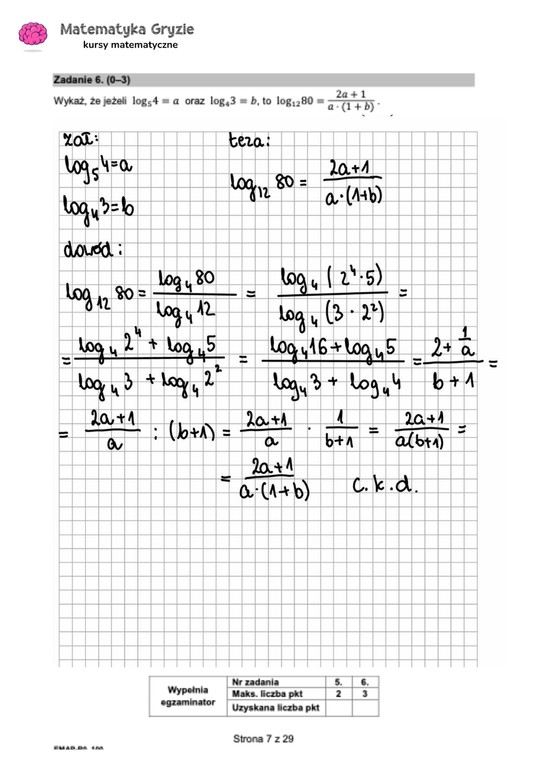 Matematyka Gryzie
kursy matematyczne
Zadanie 6. (0–3)
Wykaż, że jeżeli log₅4 = a oraz log₄3 = b, to log₁₂80 = (2a + 1)/(a · (1 + b)).
zał: teza:
log₅4=a
log₁₂ 80 = (2a+1)/(a·(1+b))
log₄3=b
dowód:
log₁₂ 80 = (log₄ 80)/(log₄ 12) = (log₄ (2⁴·5))/(log₄ (3·2²)) =
= (log₄ 2⁴ + log₄ 5)/(log₄ 3 + log₄ 2²) = (log₄ 16 + log₄ 5)/(log₄ 3 + log₄ 4) = (2 + 1/a)/(b + 1) =
= (2a+1)/a : (b+1) = (2a+1)/a · 1/(b+1) = (2a+1)/(a(b+1)) =
= (2a+1)/(a·(1+b)) c.k.d.
Wypełnia egzaminator
Nr zadania 5. 6.
Maks. liczba pkt 2 3
Uzyskana liczba pkt
Strona 7 z 29